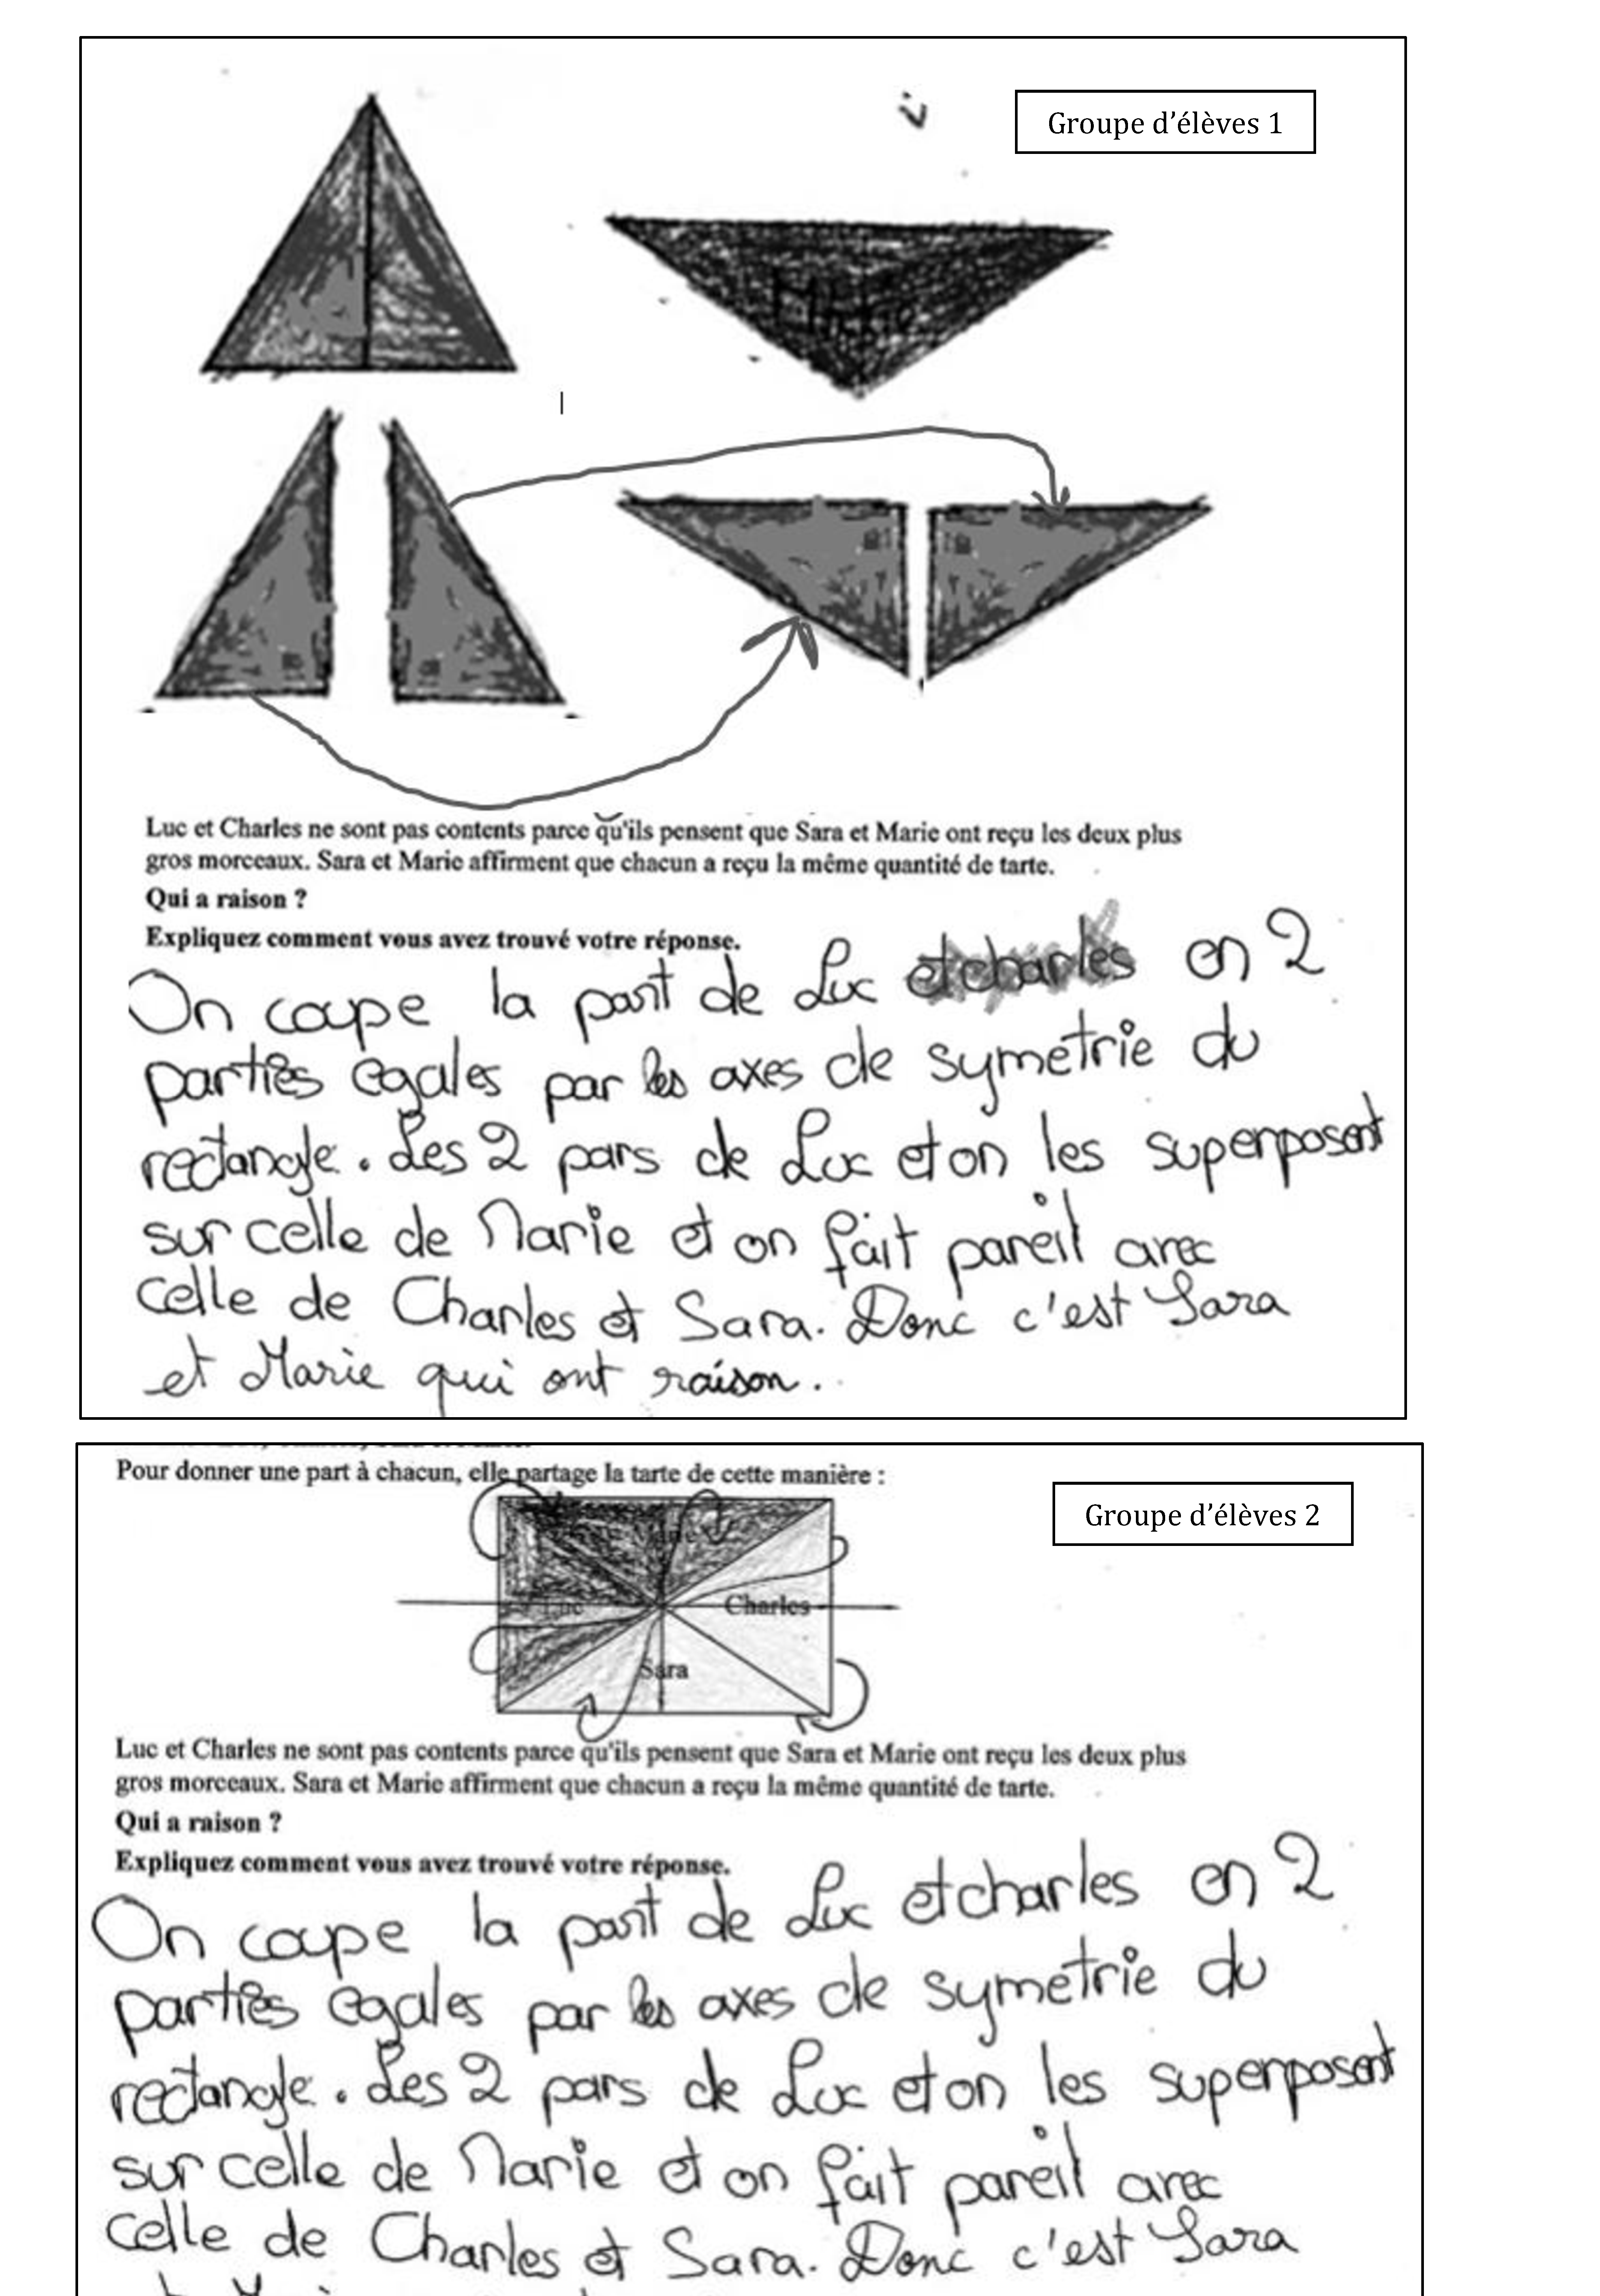 Groupe d'élèves 1
Luc et Charles ne sont pas contents parce qu'ils pensent que Sara et Marie ont reçu les deux plus
gros morceaux. Sara et Marie affirment que chacun a reçu la même quantité de tarte.
Qui a raison ?
Expliquez comment vous avez trouvé votre réponse.
On coupe la part de Luc et charles en 2
parties egales par les axes de symétrie du
rectangle. Les 2 pars de Luc et on les superposent
sur celle de Marie et on fait pareil avec
celle de Charles et Sara. Donc c'est Sara
et Marie qui ont raison.
Pour donner une part à chacun, elle partage la tarte de cette manière :
Groupe d'élèves 2
Luc
Charles
Sara
Luc et Charles ne sont pas contents parce qu'ils pensent que Sara et Marie ont reçu les deux plus
gros morceaux. Sara et Marie affirment que chacun a reçu la même quantité de tarte.
Qui a raison ?
Expliquez comment vous avez trouvé votre réponse.
On coupe la part de Luc et charles en 2
parties egales par les axes de symétrie du
rectangle. Les 2 pars de Luc et on les superposent
sur celle de Marie et on fait pareil avec
celle de Charles et Sara. Donc c'est Sara